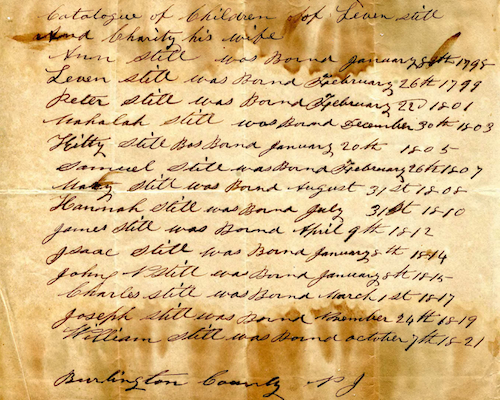 Catalogue of Children of Leven Still
And Charity his wife
Ann Still was Bornd January 1798
Leven Still was Bornd Ffebruary 26th 1799
Peter Still was Bornd Ffebruary 22d 1801
Mahalah Still was Bornd December 30th 1803
Kitty Still Bos Bornd January 20th 1805
Samuel Still was Bornd Ffebruary 26th 1807
Mary Still was Bornd August 31st 1808
Hannah Still was Bornd July 31st 1810
James Still was Bornd April 9th 1812
Isaac Still was Bornd January 8th 1814
John N Still was Bornd January 8th 1815
Charles Still was Bornd March 1st 1817
Joseph Still was Bornd November 24th 1819
William Still was Bornd October 7th 1821
Burlington County N J